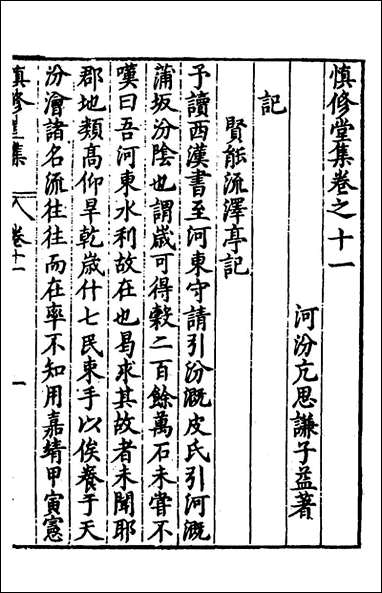 慎修堂集卷之十一
河汾亢思謙子益著
記
賢能流澤亭記
予讀西漢書至河東守請引汾溉皮氏引河溉
蒲坂汾陰也謂歲可得穀二百餘萬石未嘗不
嘆曰吾河東水利故在也曷求其故者未聞耶
郡地類高仰旱乾歲什七民束手以俟養于天
汾澮諸名流往往而在率不知用嘉靖甲寅憲
慎修堂集 卷十一 一